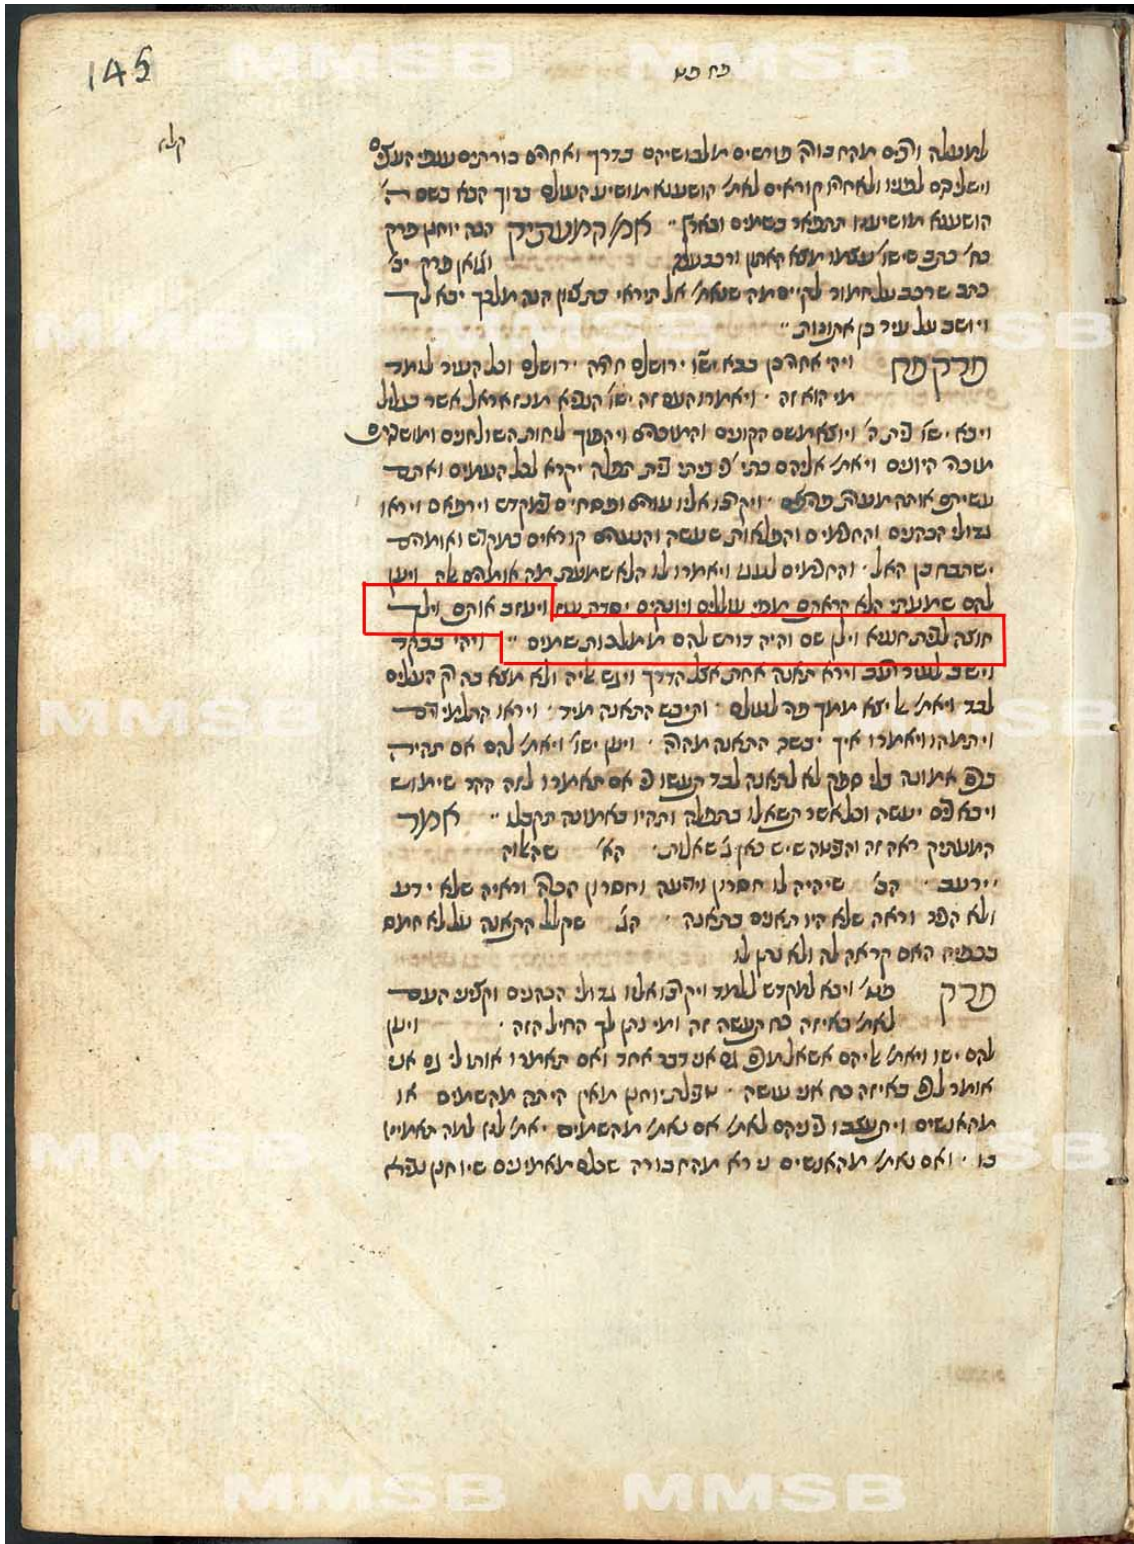 145
פח פט
קלא
למעלה והיס מהחבורה פורשים מלבושיהם בדרך ואחרים כורתים ענפי העצים
וישליכם לפניו ולאחריו קוראים לאמ׳ הושענא מושיע העולם ברוך הבא בשם ה׳
הושענא מושיענו תתפאר בשמים ובארץ אמ׳ המעתיק הנה יוחנן פרק
כח׳ כתב שישו׳ עצמו מצא האתון ורכב עליה וכאן פרק יב׳
כתב שרכב על חמור לקיים מה שנאמ׳ אל תיראי בת ציון הנה מלכך יבא לך
ויושב על עיר בן אתונות
פרק פח ויהי אחר כן כבא ישו ירושלם חרדה ירושלם וכל העיר לאמר
מי הוא זה ויאמרו העם זה ישו׳ הנביא מנאזראל אשר בגליל
ויבא ישו בית ה׳ ויוצא משם הקונים והמוכרים ויהפוך לוחות השולחנים ומושבות
מוכרי היונים ויאמ׳ אליהם כתי׳ כי ביתי בית תפלה יקרא לכל העמים ואתם
עשיתם אותה מערת פריצים ויקרבו אליו עורים ופסחים במקדש וירפאם ויראו
גדולי הכהנים והחכמים הפלאות שעשה והנערים קוראים במקדש ואומרים
ישתבח בן האל והחכמים לעגו ויאמרו לו הלא שמעת מה אומרים אלה ויען
להם שמעתי הלא קראתם מפי עוללים ויונקים יסדת עוז ויעזוב אותם וילך
חוצה לבית חנניא וילן שם והיה דורש להם ממלכות שמים ויהי בבקר
וישב לעיר רעב וירא תאנה אחת אצל הדרך ויגש אליה ולא מצא בה רק העלים
לבד ויאמ׳ אל יצא ממך פרי לעולם ותיבש התאנה מיד ויראו התלמידים
ויתמהו ויאמרו איך יבשה התאנה מהרה ויען ישו׳ ויאמ׳ להם אם תהיה
בכם אמונה בלי ספק לא לתאנה לבד תעשו כי אם תאמרו לזה ההר שימוש
ויבא בים יעשה וכל אשר תשאלו בתפלה ותהיו באמונה תקבלו אמר
המעתיק ראה זה והבן שיש כאן ג׳ שאלות הא׳ שהאלוה
ירעב הב׳ שיהיה לו חסרון ידיעה וחסרון הכרה וראיה שלא ידע
ולא הכיר וראה שלא היו תאנים בתאנה הג׳ שקלל התאנה על לא חמס
בכפיה האם קראה לה ולא נתן לו
פרק פט׳ ויבא למקדש ללמד ויקרבו אליו גדולי הכהנים וקציני העם
לאמ׳ באיזה כח תעשה זה ומי נתן לך החיל הזה ויען
להם ישו ויאמ׳ אליהם אשאל מכם גם אני דבר אחד ואם תאמרו אותו לי גם אני
אומר לכם באיזה כח אני עושה טבילת יוחנן מאין היתה מהשמים או
מהאנשים ויתעצבו ביניהם לאמ׳ אם נאמ׳ מהשמים יאמ׳ לנו למה תאמינו
בו ואם נאמ׳ מהאנשים נירא מהחבורה שכלם מאמינים שיוחנן נביא